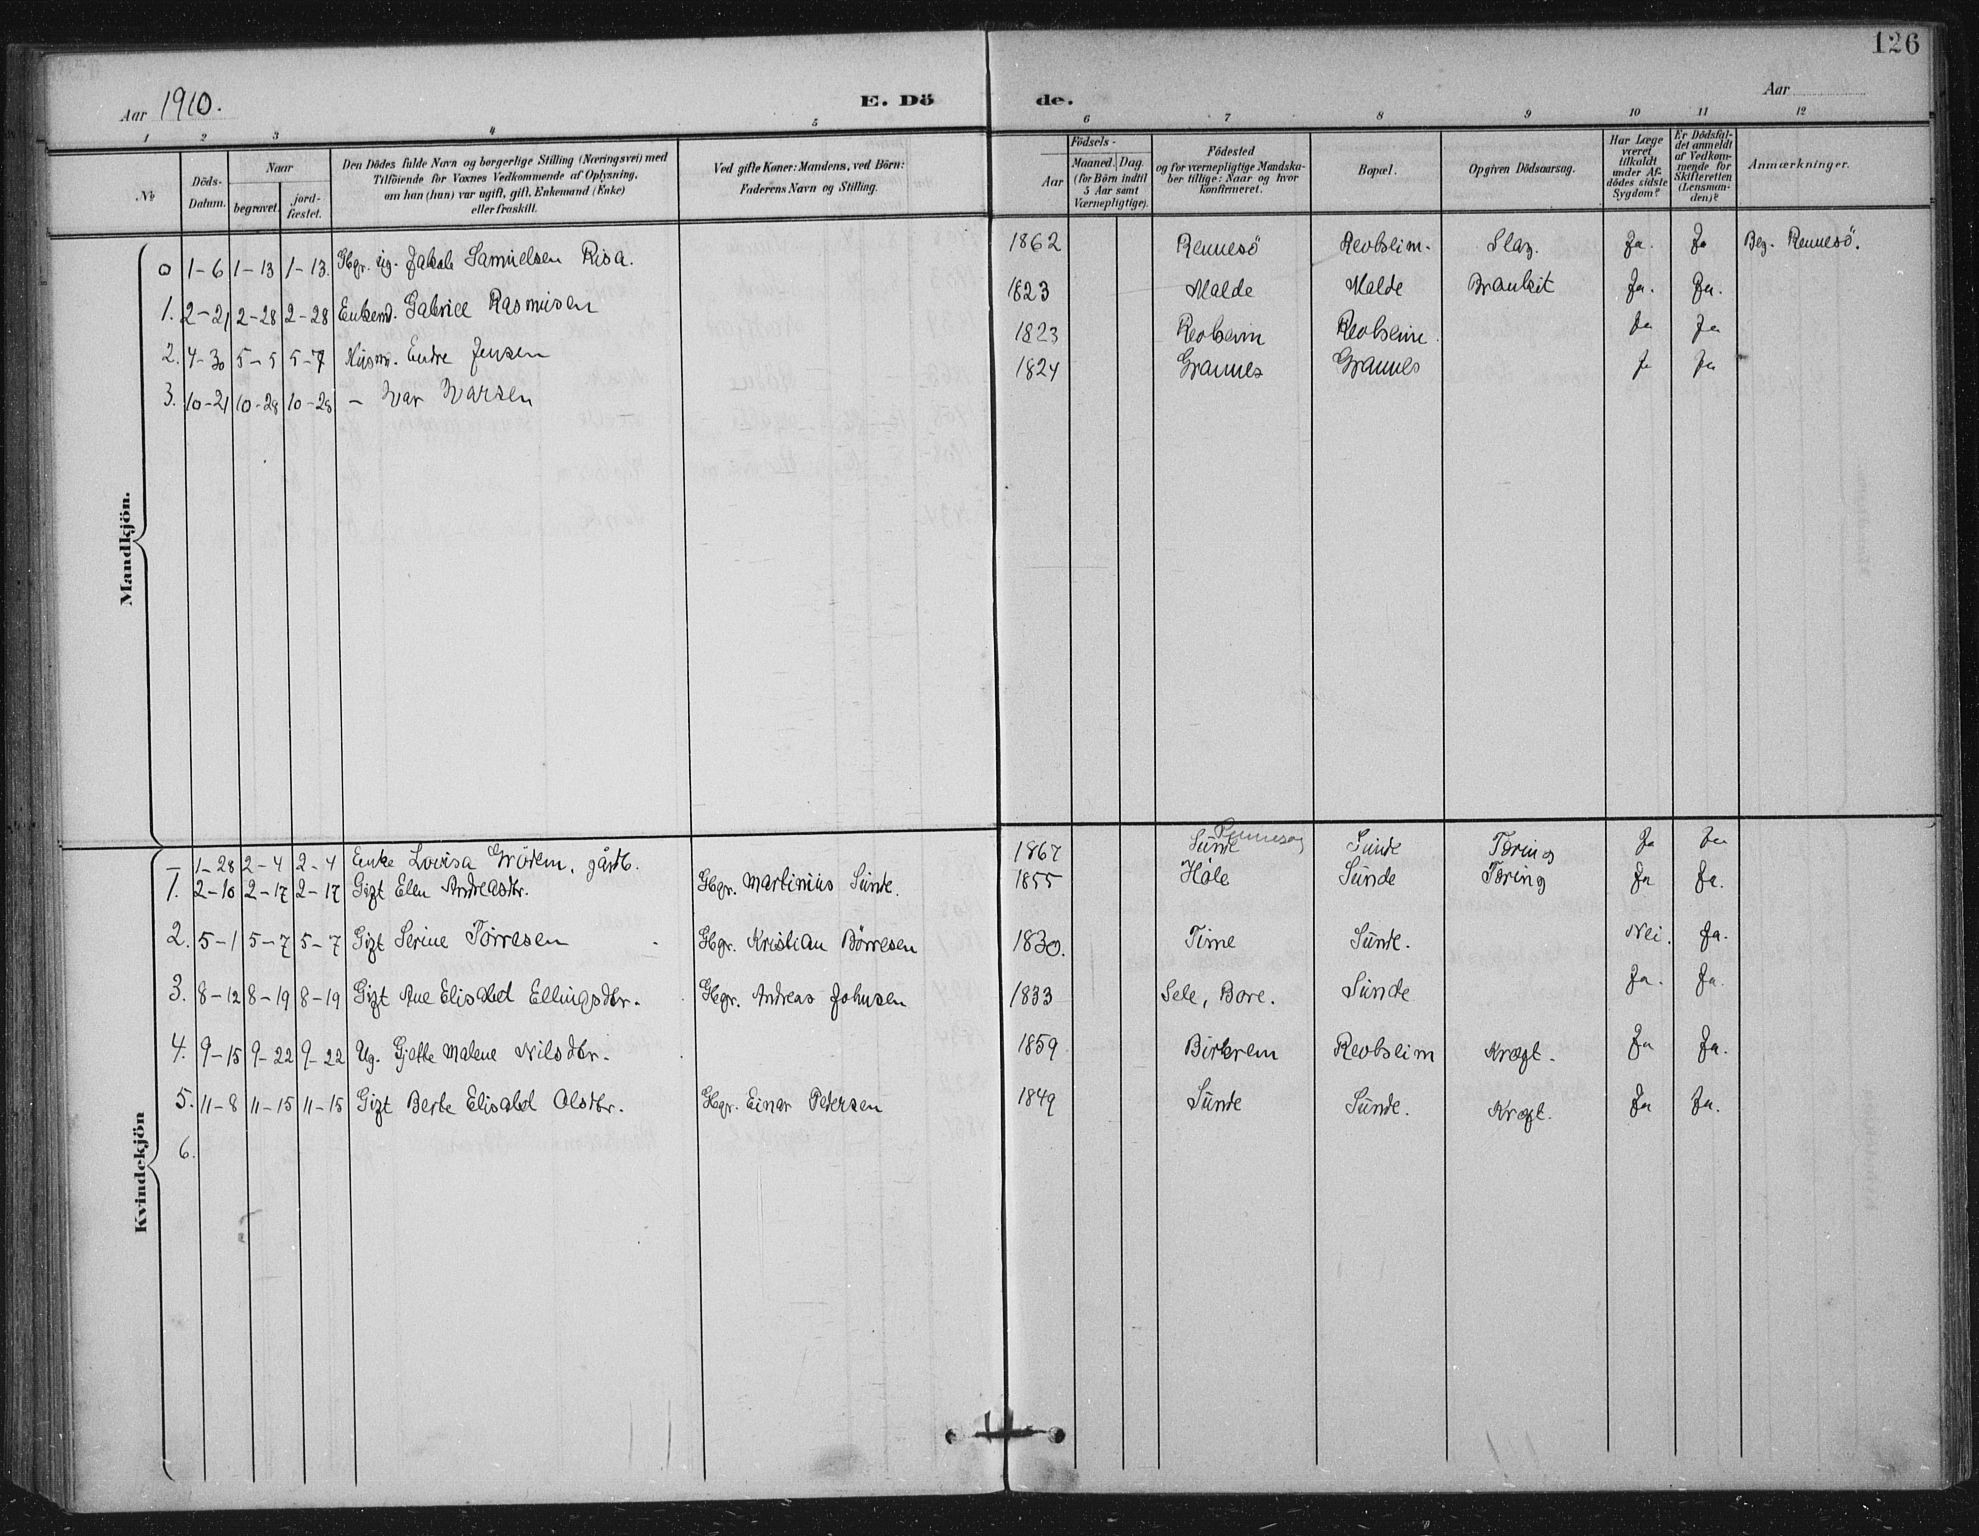 126
Aar 1910.
E. Dö de.
Aar
1 2 3 4 5 6 7 8 9 10 11 12
No
Döds-Datum.
Naar
begravet.
jord-fæstet.
Den Dödes fulde Navn og borgerlige Stilling (Næringsvei) med
Tilföiende for Voxnes Vedkommende af Oplysning,
om han (hun) var ugift, gift, Enkemand (Enke)
eller fraskilt.
Ved gifte Koner: Mandens, ved Börn:
Faderens Navn og Stilling.
Födsels-
Aar
Maaned. Dag.
(for Börn indtil
5 Aar samt
Værnepligtige).
Födested
og for værnepligtige Mandska-
ber tillige: Naar og hvor
konfirmeret.
Bopæl.
Opgiven Dödsaarsag.
Har Læge
været
tilkaldt
under Af-
dödes sidste
Sygdom?
Er Dödsfal-
det anmeldt
af Vedkom-
mende for
Skifteretten
(Lensman-
den)?
Anmærkninger.
Mandkjön.
0 1-6 1-13 1-13. Gbgr. ug. Jakob Samuelsen Risa. 1862 Rennesö Revheim. Slag. Ja. Ja Beg. Rennesö.
1. 2-21 2-28 2-28 Enkem. Gabriel Rasmusen 1823 Malde Malde Bronkit Ja. Ja.
2. 4-30 5-5 5-7 Husm. Endre Jensen 1823 Revheim Revheim. Ja Ja
3. 10-21 10-28 10-28 - Ivar Ivarsen 1824 Grannes Grannes Ja Ja
Kvindekjön
- 1-28 2-4 2-4 Enke Lovisa Grödem, gårdb. 1867 Sunde Rennesøy Sunde Tæring Ja Ja
1. 2-10 2-17 2-17 Gift Elen Andreasdtr. Gbgr. Martinius Sunde. 1855 Høle Sunde Tæring Ja Ja.
2. 5-1 5-7 5-7 Gift Serine Tørresen Gbgr. Kristian Börresen 1830. Time Sunde. Nei. Ja.
3. 8-12 8-19 8-19 Gift Ane Elisabet Ellingsdtr. Gbgr. Andreas Johnsen 1833 Sele, Bore. Sunde Ja. Ja.
4. 9-15 9-22 9-22 Ug. Gjette Malene Nilsdtr. 1859 Birkrem Revheim Kræft. Ja Ja.
5. 11-8 11-15 11-15 Gift Berte Elisabet Olsdtr. Gbgr. Einar Pedersen 1849 Sunde Sunde. Kræft. Ja Ja.
6.